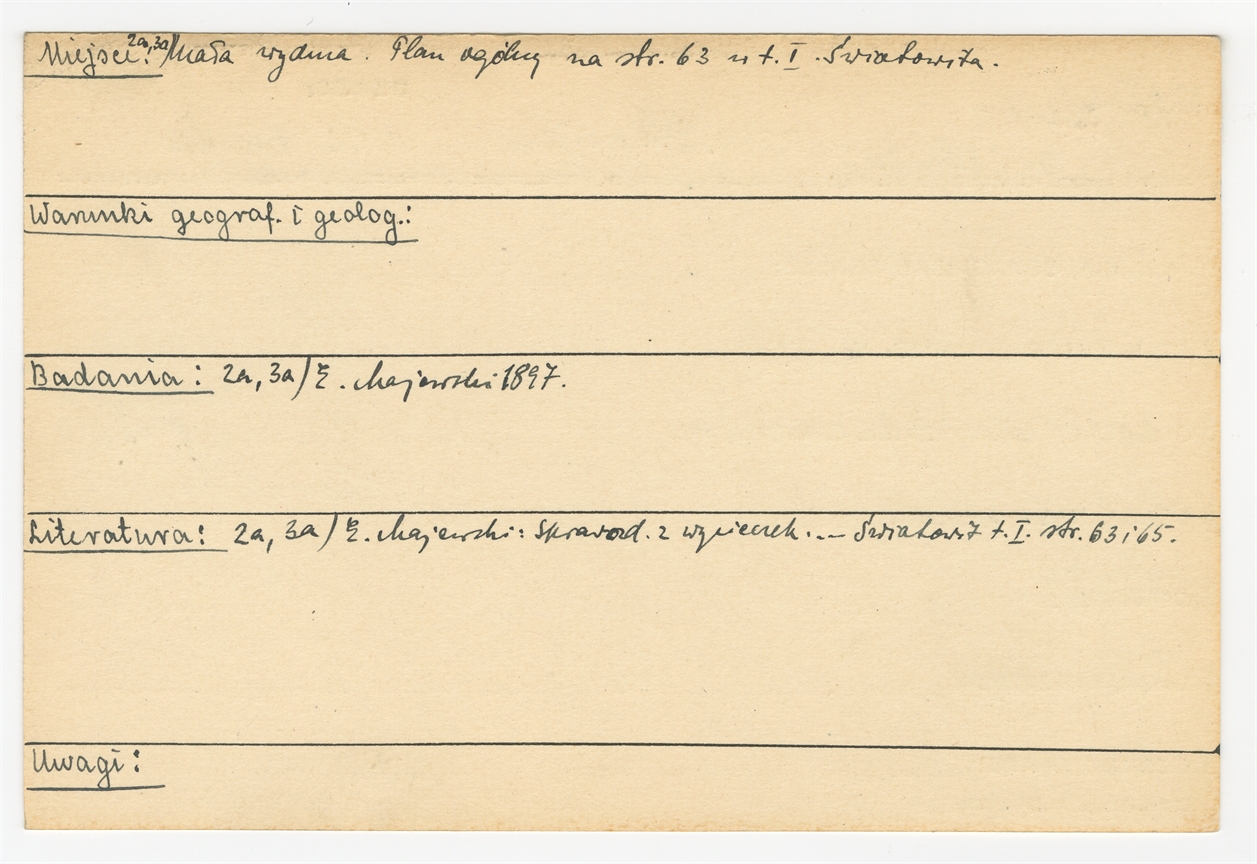 Miejsce: 2a, 3a) Mała wydma. Plan ogólny na str. 63 w t. I. Światowita.
Warunki geograf. i geolog.:
Badania: 2a, 3a) E. Majewski 1897.
Literatura: 2a, 3a) E. Majewski: Sprawozd. z wycieczek... Światowit t. I. str. 63 i 65.
Uwagi: